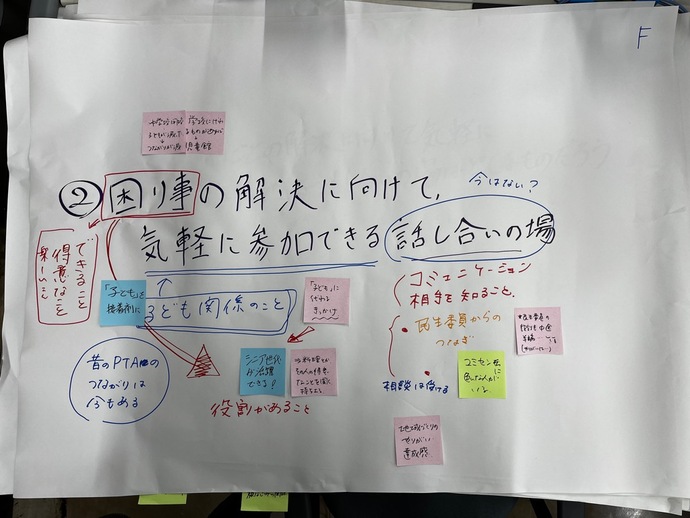 F
②困り事の解決に向けて、
今はない?
気軽に参加できる話し合いの場
できること
得意なことを
「子ども」を
接着剤に
子ども関係のこと
「子ども」に
代わる
きっかけ
コミュニケーション
相手を知ること。
・民生委員からの
つなぎ
・相談は受ける
コミセン祭に
色んな人が
いる
シニア世代
が活躍
できる!
役割があること
昔のPTAの
つながりは
今もある
地域づくりの
やりがい
達成感